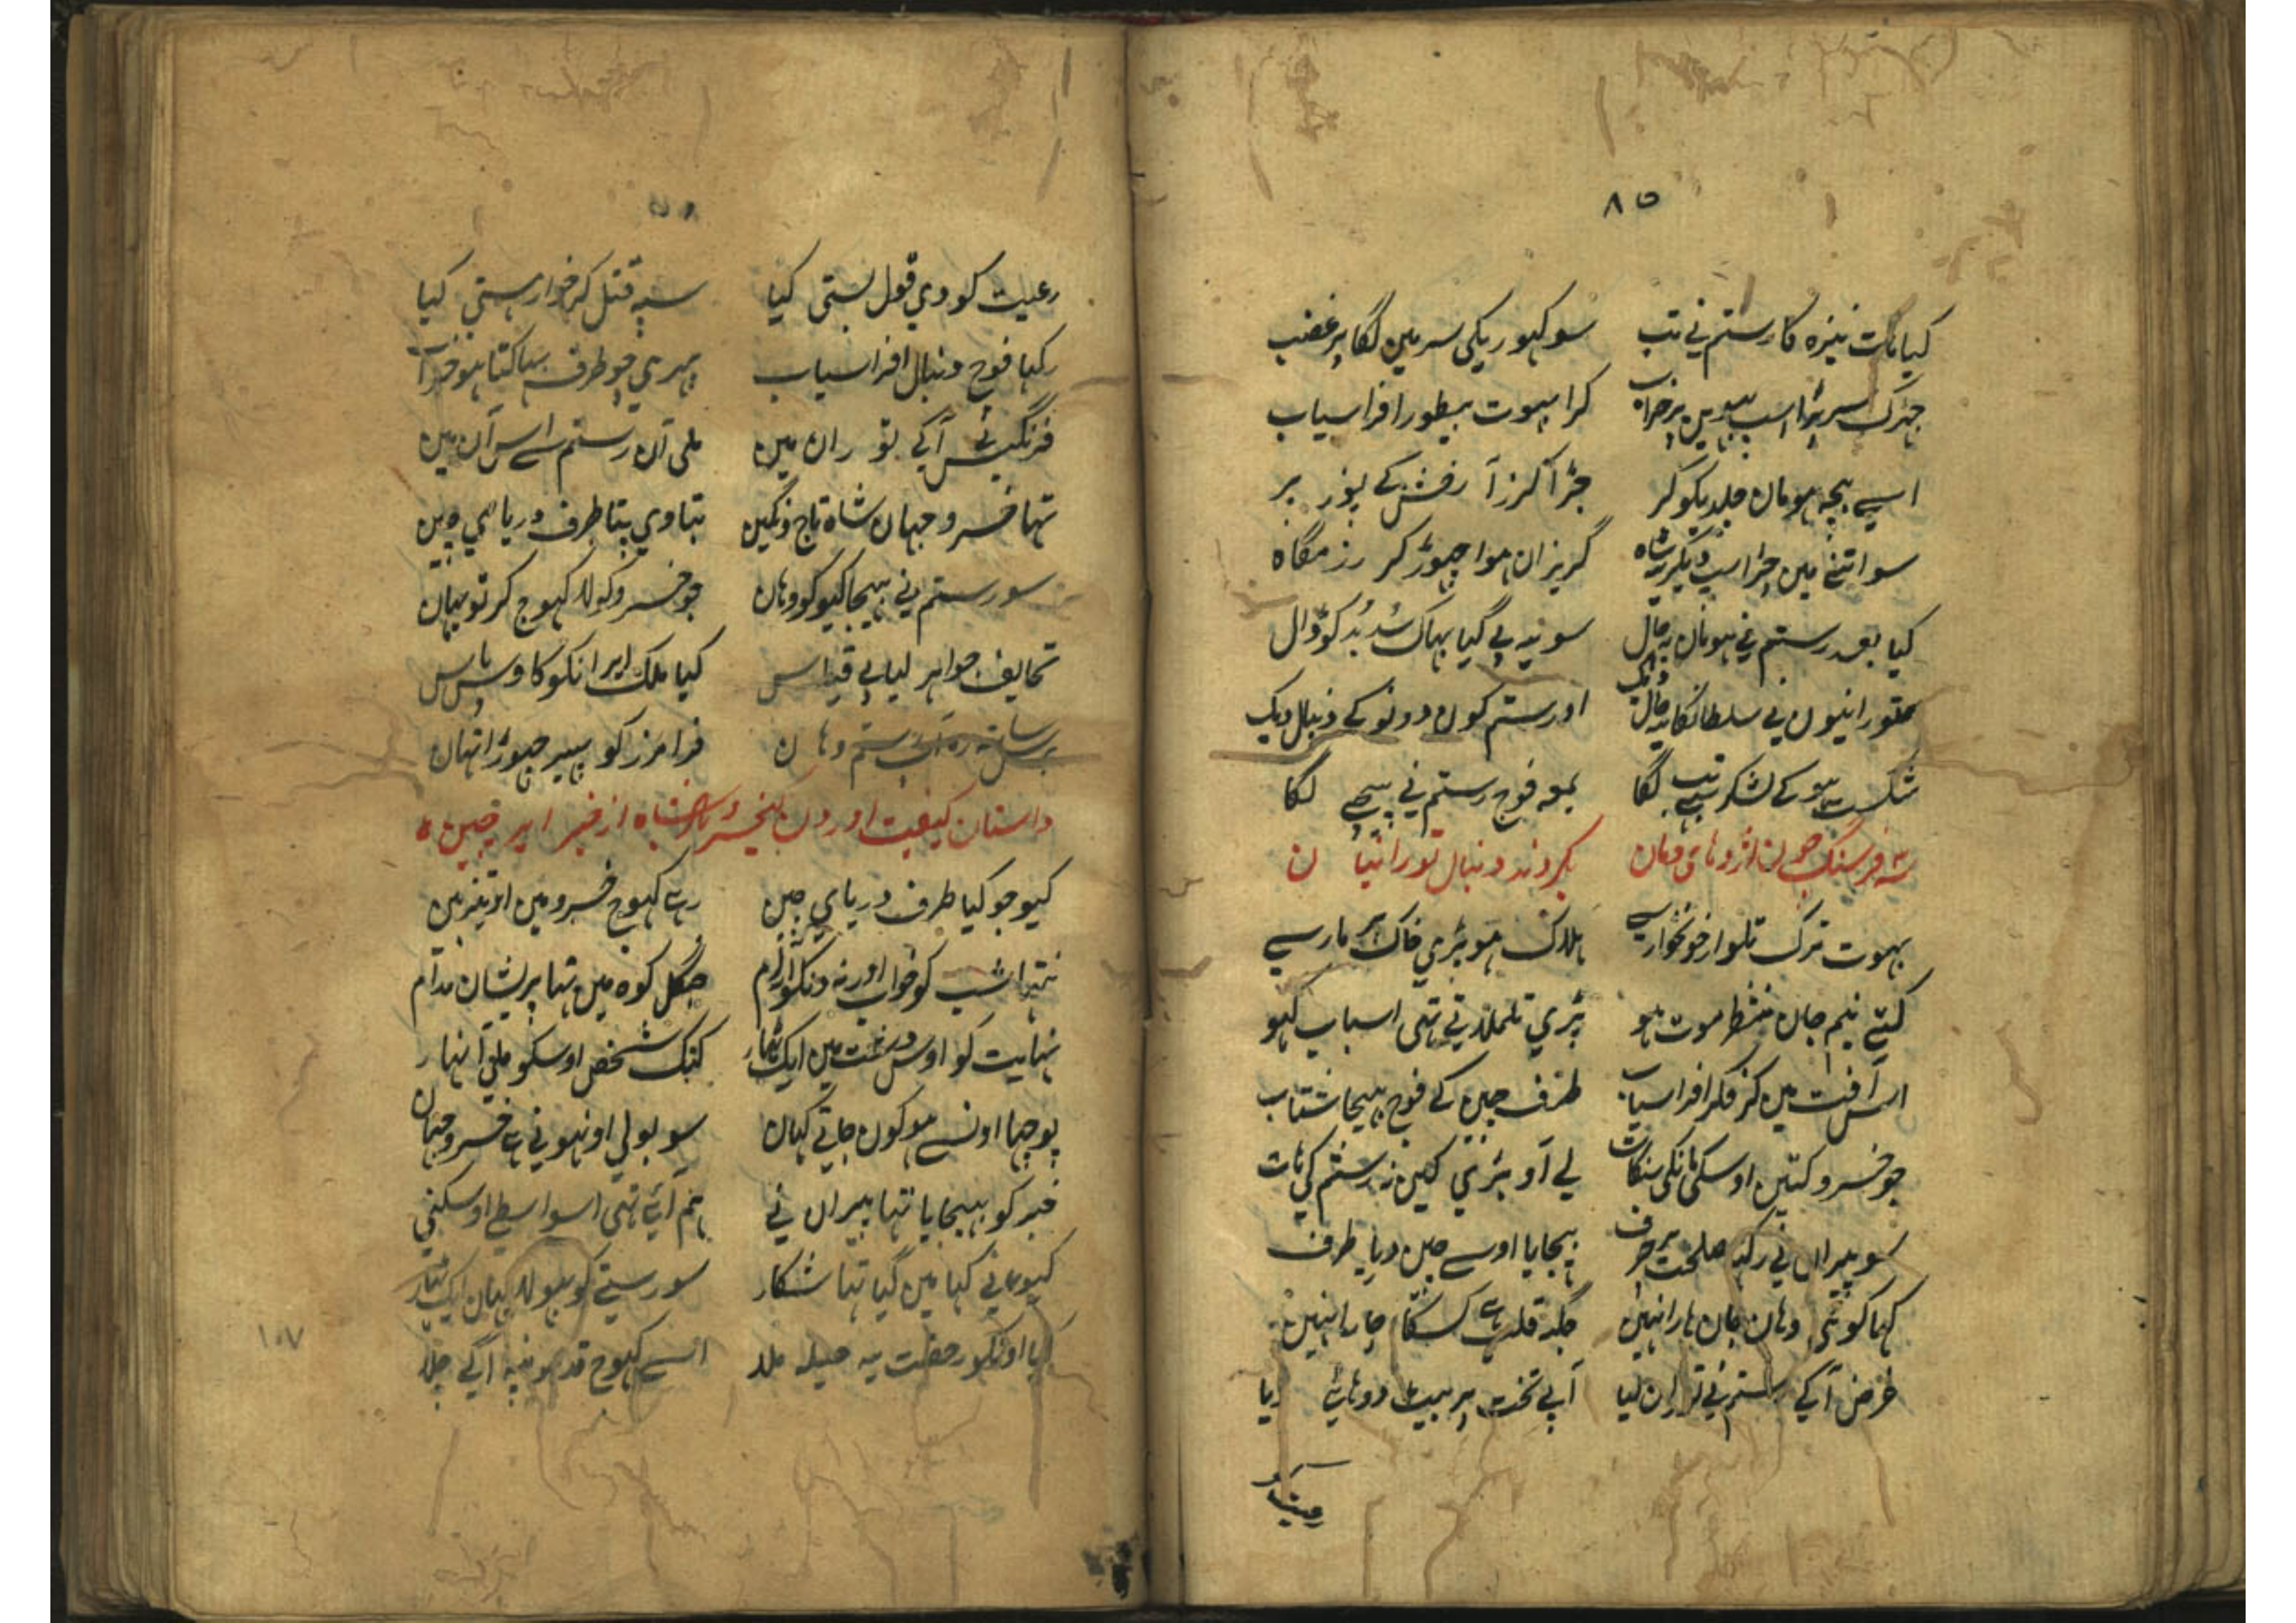 ۸۵
کیا بات نیزہ کا رستم نے تب سو کہوریکی سر مین لگا پر غضب
جہڑک سر پڑا اسپ بہوین پر خراب گرا بہوت بیطور افراسیاب
اسے بچہ ہومان جلد یکو کر جڑا گرز آ رخش کے پور پر
سو اتنے مین چڑ اسپ دیگر پہ شاہ گریزان ہوا چہوڑ کر رزمگاہ
کیا بعد رستم نے ہومان پہ چال سو یہ بے گیا بہاگ سد بد کو ڈال
تورانیون نے سلطانکا یہ حال دیک او رستم کون دونو کے دنبال دیک
شکست ہو کے لشکر تب بہنے لگا بمعہ فوج رستم نے پیچہے لگا
سہ فرسنگ چون اژدہای دمان بکردند دنبال تورانیان
بہوت ترک تلوار خونخوار سے ہلاک ہو پڑی خاک پر مار سے
کیتے نیم جان منتظر موت ہو پڑی تلملاتے تہی اسباب کہو
اس آفت مین کر فکر افراسیاب طرف چین کے فوج بہیجا شتاب
جو خسرو کتین اوسکی مانکی سنگات لے آو پڑی کین نہ رستم کی ہات
سو پیران نے رکہہ صلحت پر حرف بہیجایا اوسے چین دریا طرف
کہا کوئی وہان جان ہارا نہین جگہ قلب ہے کس کا چارا نہین
غرض آکے رستم نے توران لیا آپے تخت پر بیٹ دوہائے دیا
رعیت کو
رعیت کو دی قول بستی کیا سبہ قتل کر خوار ہستی کیا
رکہا فوج دنبال افراسیاب پہری چو طرف بہاگتا ہو خراب
فرنگیس آکے توران مین ملی آن رستم سے اس آن مین
تہا خسرو جہان شاہ تاج و نگین بتاوی پتا طرف دریای چین
سو رستم نے بہیجا کیو کو وہان جو خسرو کو لا کہوج کر تو یہان
تحایف جواہر لیا بے قیاس کیا ملک ایرانکو کاوس پاس
برس سات رہ آئے رستم وہان فرامرز کو پہیر چہوڑا تہان
داستان کیفیت اوردن کیخسرو شاہ از خبر چین
کیو جو کیا طرف دریای چین رہے کہوج خسرو مین
نتہا شب کو خواب اور نہ دنکو ارام جنگل کوہ مین تہا پریشان مدام
نہایت کو اوس دشت مین ایک ٹہار کتک شخص اوسکو ملی آ نہار
پوچہا اونسے ہو کون جاتے کہان سو بولی اونہونے ہے خسرو جہان
خبر کو بہیجایا تہا پیران نے ہم آئے تہی اسواسطے اوسکنے
کیو نے کہا مین گیا تہا شکار سو رستے کو بہولا یہان ایک ٹہار
کیا اونکو رخصت یہ حیلہ ملا اسے کہوج قدمونپہ آگے چلا
۱۰۷